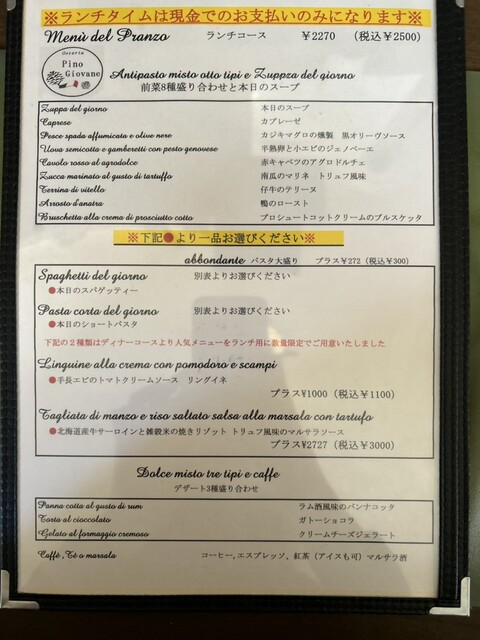 ※ランチタイムは現金でのお支払いのみになります※
Menù del Pranzo ランチコース ￥2270 (税込￥2500)
Osteria
Pino
Giovane
Antipasto misto otto tipi e Zuppza del giorno
前菜8種盛り合わせと本日のスープ
Zuppa del giorno 本日のスープ
Caprese カプレーゼ
Pesce spada affumicata e olive nere カジキマグロの燻製 黒オリーヴソース
Uova semicotte e gamberetti con pesto genovese 半熟卵と小エビのジェノベーゼ
Cavolo rosso al agrodolce 赤キャベツのアグロドルチェ
Zucca marinato al gusto di tartufo 南瓜のマリネ トリュフ風味
Terrina di vitello 仔牛のテリーヌ
Arrosto d'anatra 鴨のロースト
Bruschetta alla crema di prosciutto cotto プロシュートコットクリームのブルスケッタ
※下記●より一品お選びください※
abbondante パスタ大盛り プラス￥272 (税込￥300)
Spaghetti del giorno 別表よりお選びください
●本日のスパゲッティー
Pasta corta del giorno 別表よりお選びください
●本日のショートパスタ
下記の2種類はディナーコースより人気メニューをランチ用に数量限定でご用意いたしました
Linguine alla crema con pomodoro e scampi
●手長エビのトマトクリームソース リングイネ
プラス¥1000 (税込￥1100)
Tagliata di manzo e riso saltato salsa alla marsala con tartufo
●北海道産牛サーロインと雑穀米の焼きリゾット トリュフ風味のマルサラソース
プラス¥2727 (税込￥3000)
Dolce misto tre tipi e caffe
デザート3種盛り合わせ
Panna cotta al gusto di rum ラム酒風味のパンナコッタ
Torta al cioccolato ガトーショコラ
Gelato al formaggio cremoso クリームチーズジェラート
Caffè ,Tè o marsala コーヒー, エスプレッソ、紅茶 (アイスも可) マルサラ酒